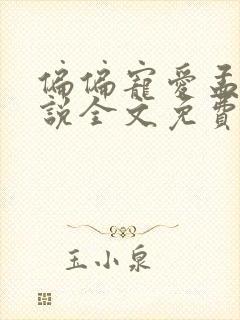 偏偏寵愛孟
說全文免費
玉小泉